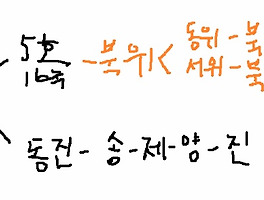 5호
16국
-북위<
동위-북
서위-북
동진-송-제-양-진